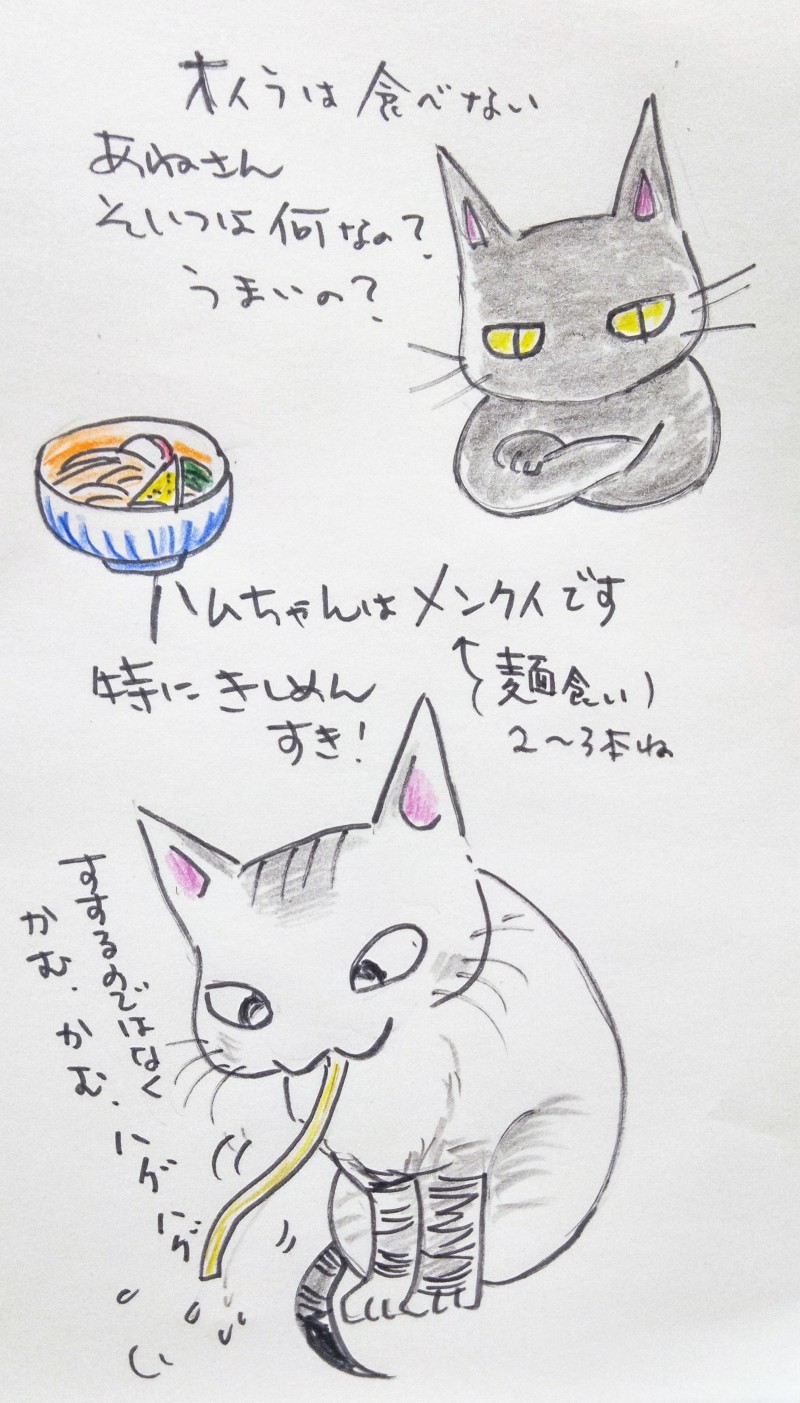 オイラは食べない
あねさん
そいつは何なの?
うまいの?
ハムちゃんはメンクイです
特にきしめん
すき!
(麺食い)
2〜3本ね
すするのではなく
かむ.かむ.ハグハグ